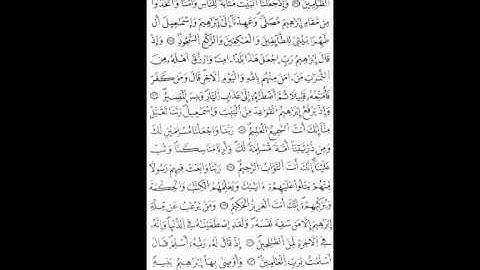 الظلمين وإذ جعلنا البيت مثابة للناس وأمنا واتخذوا
من مقام إبرهيم مصلى وعهدنا إلى إبرهيم وإسمعيل أن
طهرا بيتي للطائفين والعكفين والركع السجود وإذ
قال إبرهيم رب اجعل هذا بلدا امنا وارزق أهله من
الثمرت من امن منهم بالله واليوم الاخر قال ومن كفر
فأمتعه قليلا ثم أضطره إلى عذاب النار وبيس المصير
وإذ يرفع إبرهيم القواعد من البيت وإسمعيل ربنا تقبل
منا إنك أنت السميع العليم ربنا واجعلنا مسلمين لك
ومن ذريتنا أمة مسلمة لك وأرنا مناسكنا وتب
علينا إنك أنت التواب الرحيم ربنا وابعث فيهم رسولا
منهم يتلوا عليهم ءايتك ويعلمهم الكتب والحكمة
ويزكيهم إنك أنت العزيز الحكيم ومن يرغب عن ملة
إبرهيم إلا من سفه نفسه ولقد اصطفينه في الدنيا وإنه
في الاخرة لمن الصلحين إذ قال له ربه أسلم قال
أسلمت لرب العلمين وأوصى بها إبرهيم بنيه